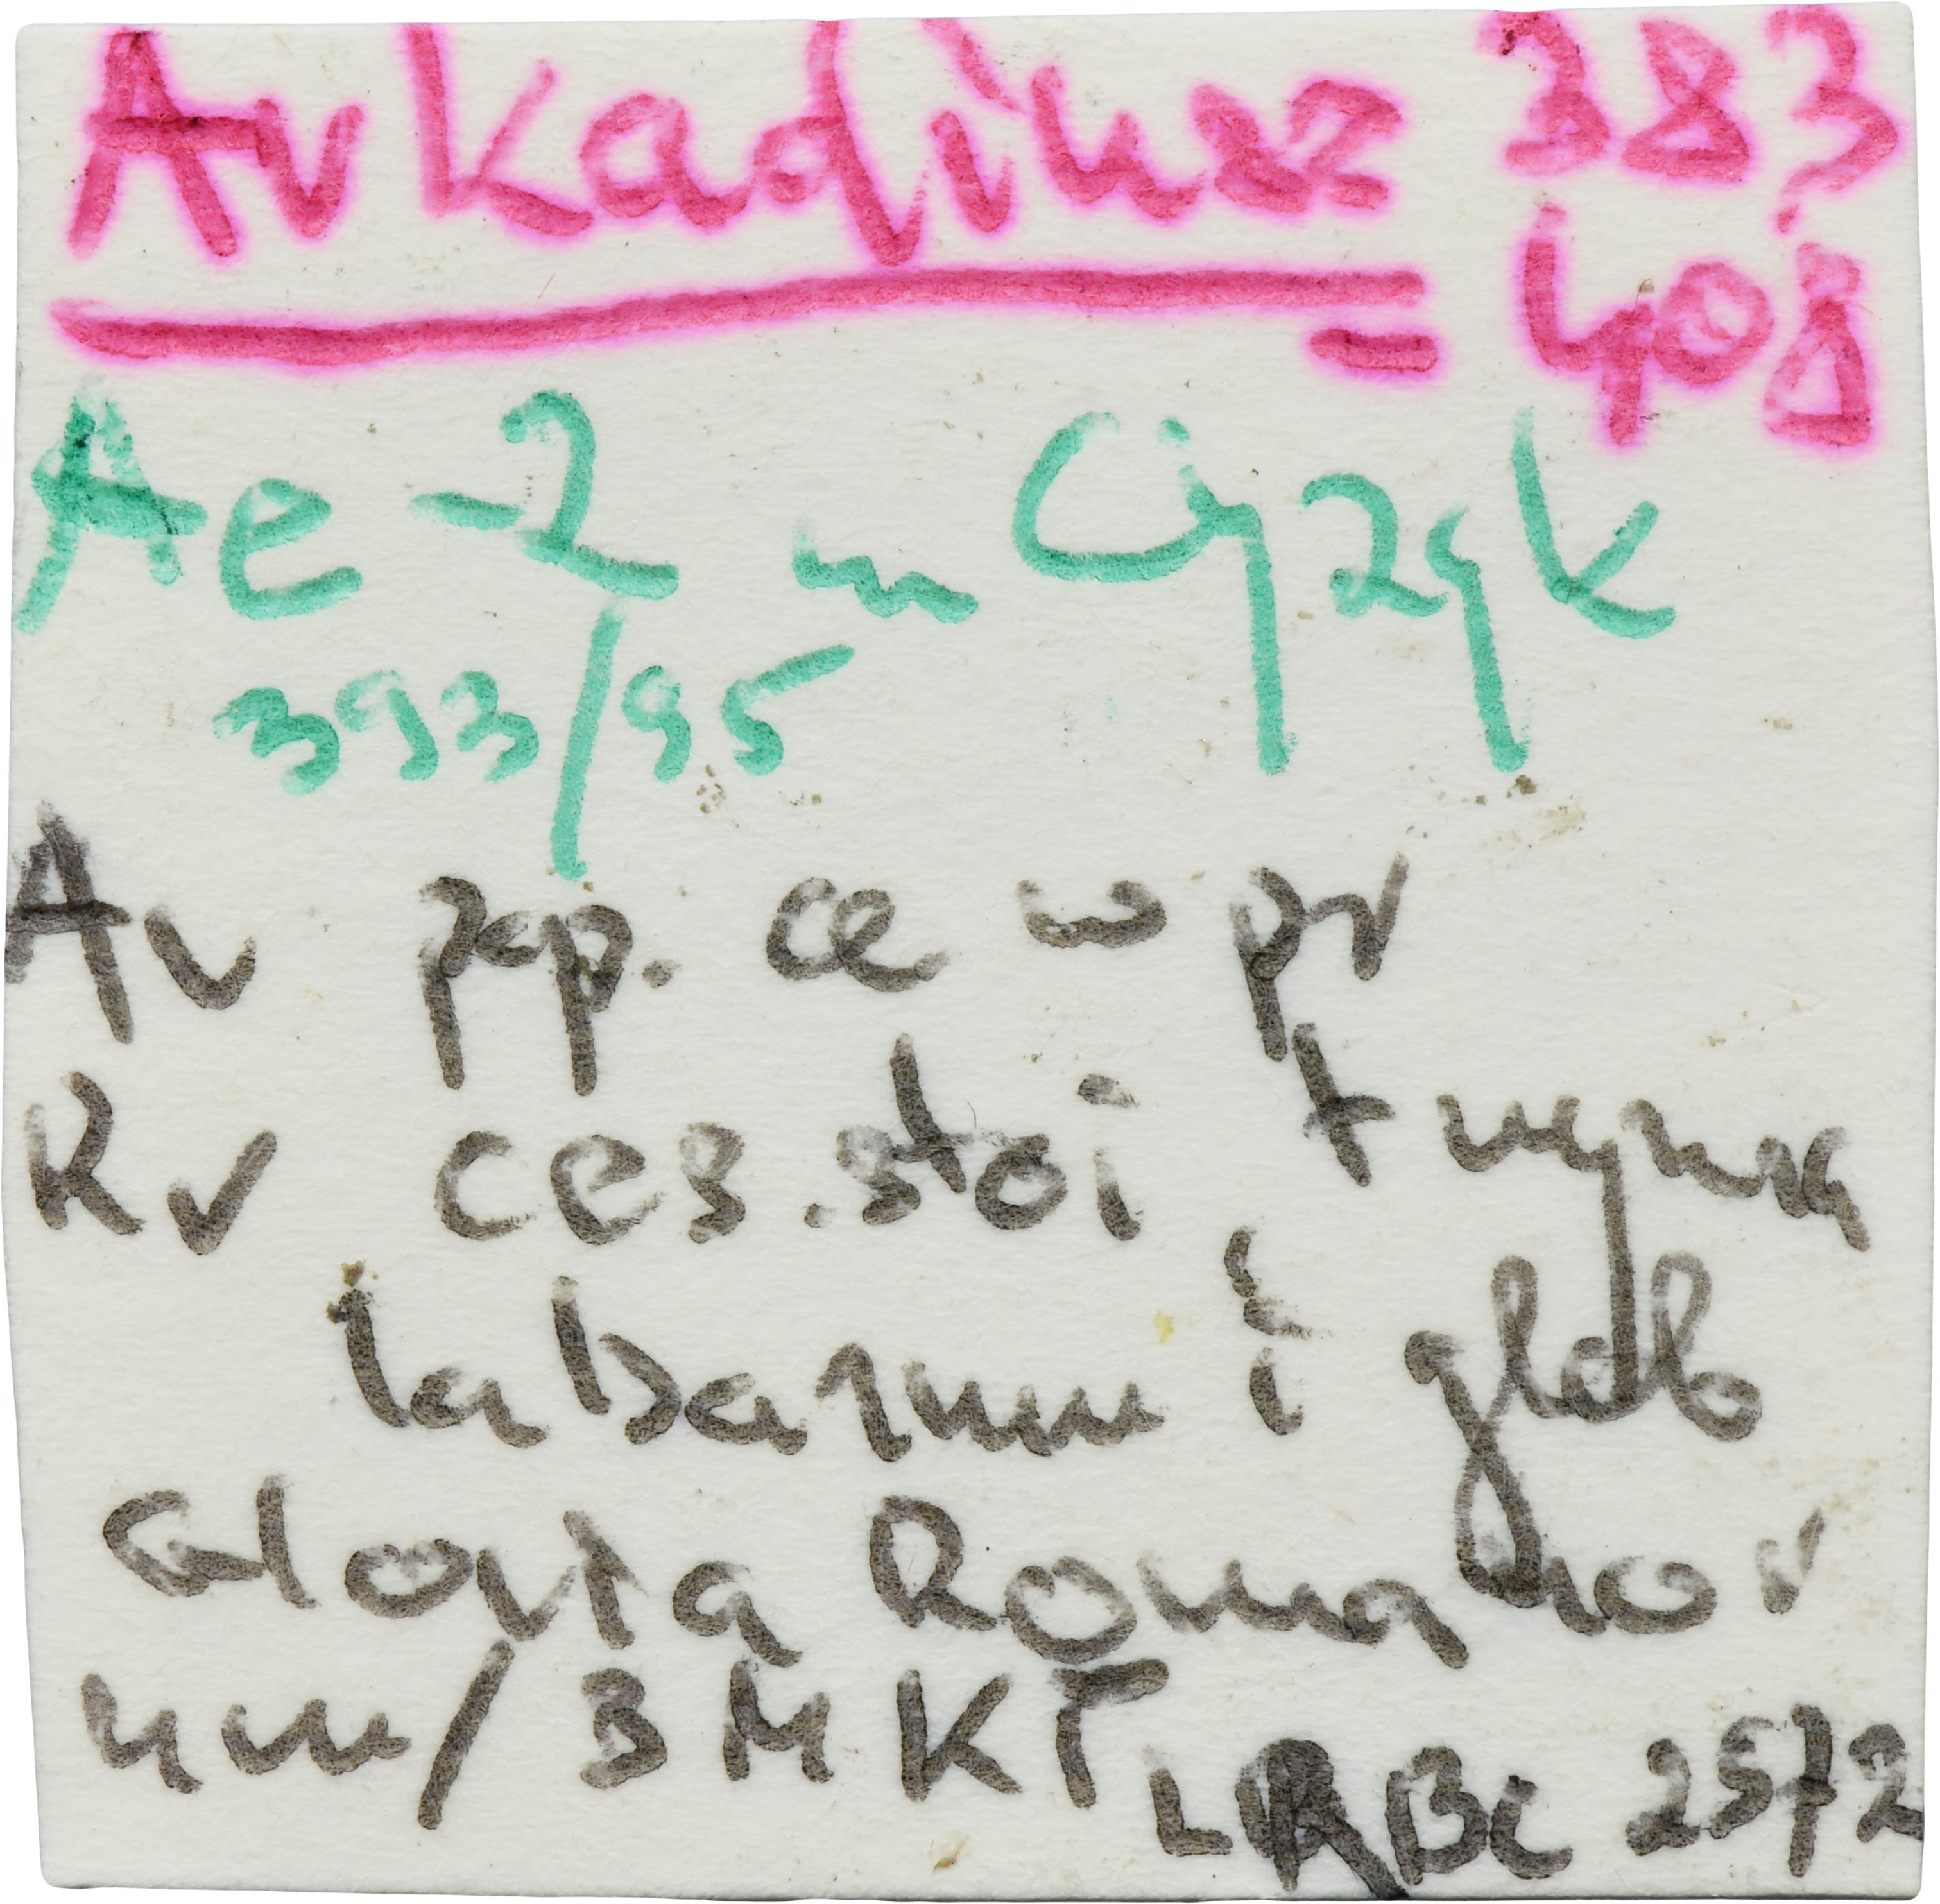 Arkadiusz 383
408
Ae-2 m Cyzyk
393/95
Av pop. ce w pr
Rv ces. stoi trzyma
labarum i glob
Gloria Romanor
um/BMKΓ LRBC 2572